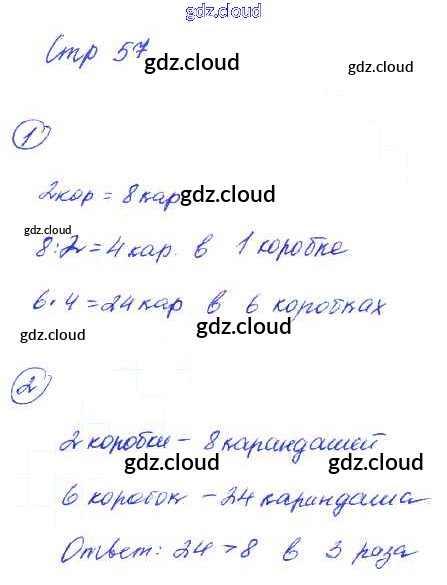 gdz.cloud
Стр 57
gdz.cloud
gdz.cloud
1
2 кор = 8 кар
gdz.cloud
gdz.cloud
8:2=4 кар. в 1 коробке
6·4=24 кар в 6 коробках
gdz.cloud
gdz.cloud
2
2 коробки – 8 карандашей
gdz.cloud
gdz.cloud
6 коробок – 24 карандаша
Ответ: 24 > 8 в 3 раза